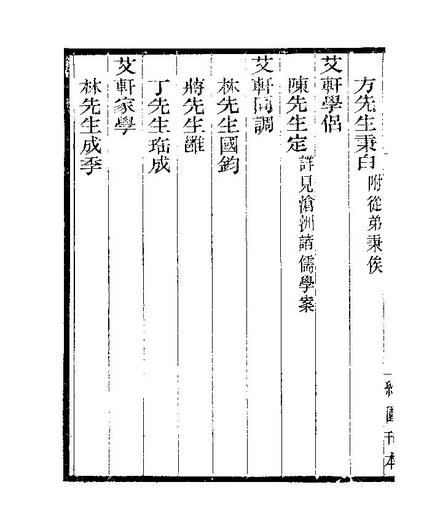 約園刊本
方先生秉白 附從弟秉俟
艾軒學侶
陳先生定 詳見滄洲諸儒學案
艾軒同調
林先生國鈞
蔣先生雝
丁先生成
艾軒家學
林先生成季